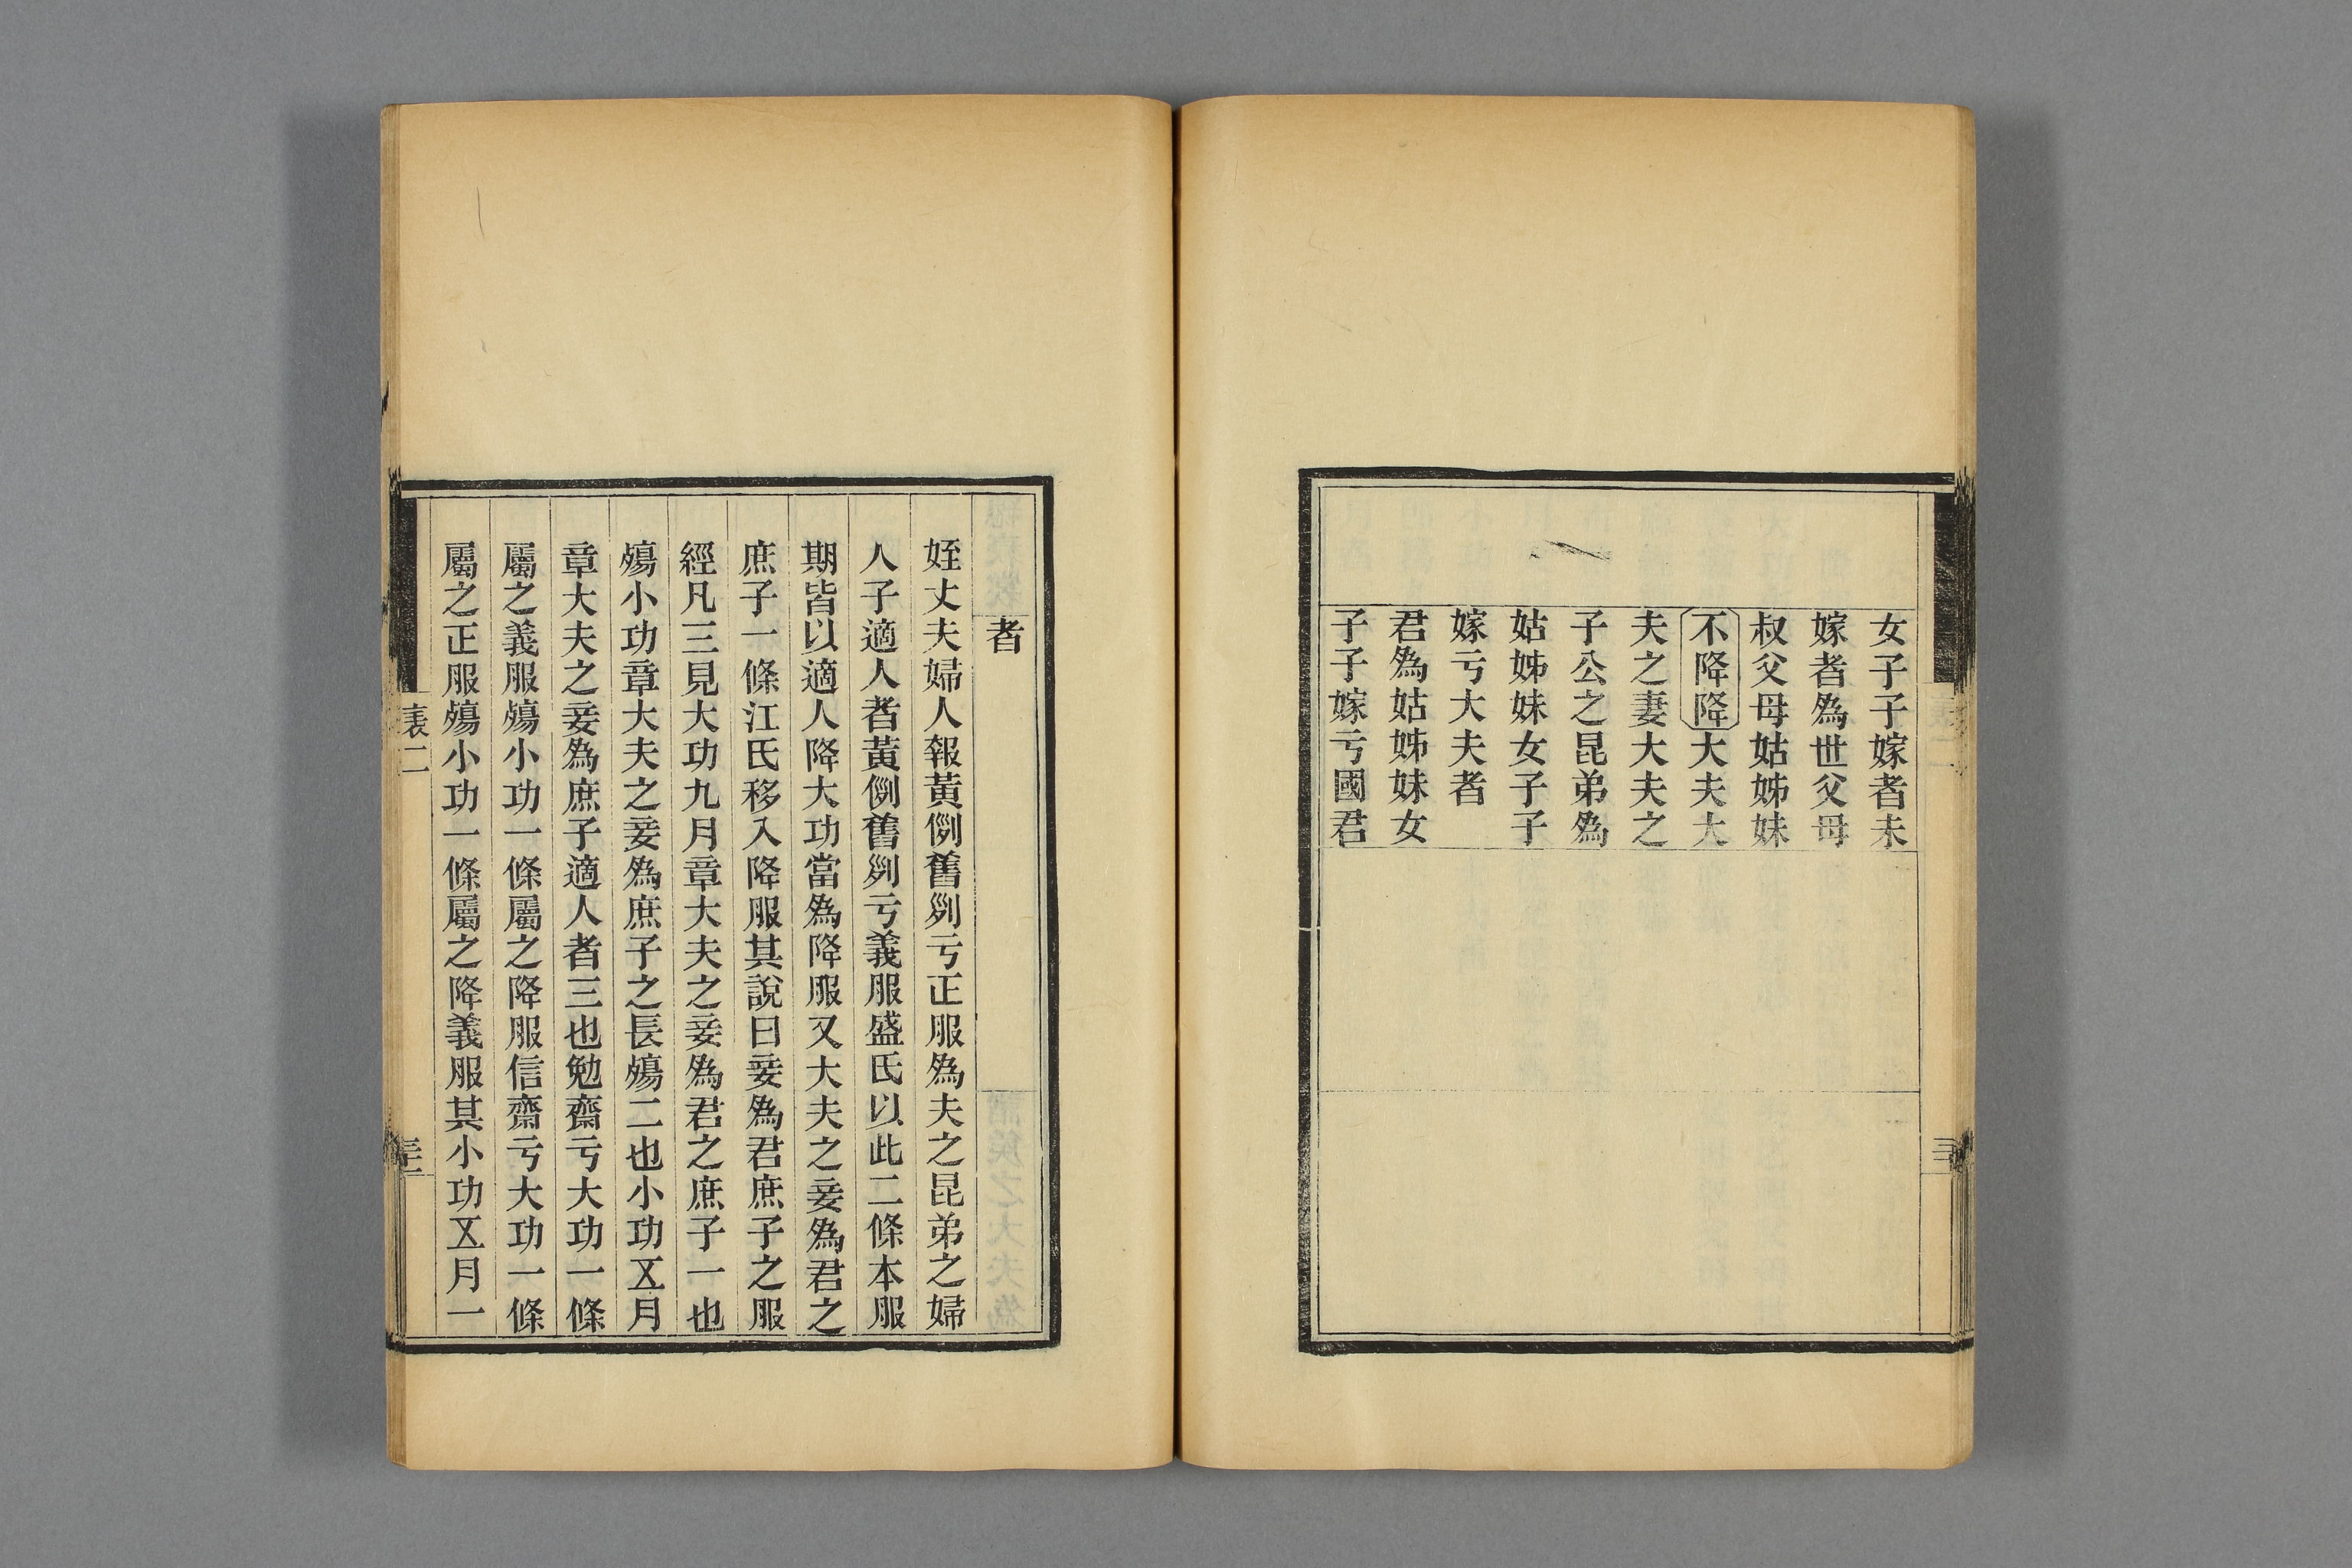 女子子嫁者未
嫁者爲世父母
叔父母姑姊妹
不降降大夫大
夫之妻大夫之
子公之昆弟爲
姑姊妹女子子
嫁亏大夫者
君爲姑姊妹女
子子嫁亏國君
者
姪丈夫婦人報黃㓡舊㓟亏正服爲夫之昆弟之婦
人子適人者黃㓡舊㓟亏義服盛氏以此二條本服
期皆以適人降大功當爲降服又大夫之妾爲君之
庶子一條江氏移入降服其說曰妾爲君庶子之服
經凡三見大功九月章大夫之妾爲君之庶子一也
殤小功章大夫之妾爲庶子之長殤二也小功㐅月
章大夫之妾爲庶子適人者三也勉齋亏大功一條
屬之義服殤小功一條屬之降服信齋亏大功一條
屬之正服殤小功一條屬之降義服其小功㐅月一
表二